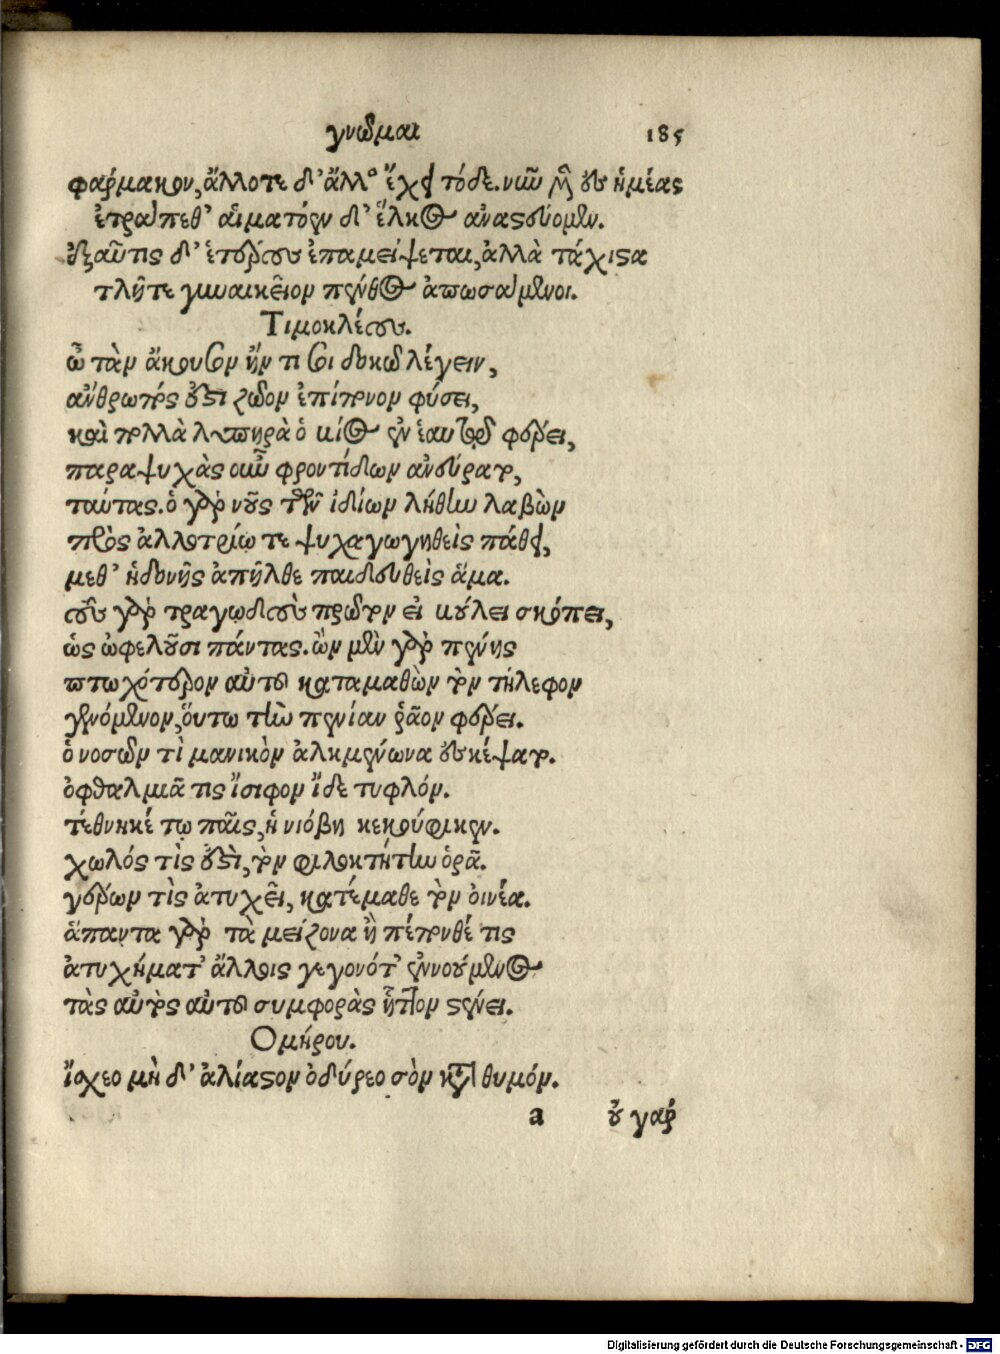 γνῶμαι 185
φάρμακον, ἄλλοτε δ' ἄλλος ἔχει τόδε. νῦν μὲν ἐς ἡμέας
ἐτράπεθ' αἱματόεν δ' ἕλκος ἀναστένομεν.
ἐξαῦτις δ' ἑτέρους ἐπαμείψεται, ἀλλὰ τάχιστα
τλῆτε γυναικεῖον πένθος ἀπωσάμενοι.
Τιμοκλέους.
ὦ τὰν ἄκουσον ἤν τι σοι δοκῶ λέγειν,
ἄνθρωπός ἐστι ζῶον ἐπίπονον φύσει,
καὶ πολλὰ λυπηρὰ ὁ βίος ἐν ἑαυτῷ φέρει,
παραψυχὰς οὖν φροντίδων ἀνεύρατο,
ταύτας. ὁ γὰρ νοῦς τῶν ἰδίων λήθην λαβὼν
πρὸς ἀλλοτρίῳ τε ψυχαγωγηθεὶς πάθει,
μεθ' ἡδονῆς ἀπῆλθε παιδευθεὶς ἅμα.
τοὺς γὰρ τραγῳδοὺς πρῶτον εἰ βούλει σκόπει,
ὡς ὠφελοῦσι πάντας. ὢν μὲν γὰρ πένης
πτωχότερον αὐτοῦ καταμαθὼν τὸν τήλεφον
γενόμενον, ὅυτω τὴν πενίαν ῥᾶον φέρει.
ὁ νοσῶν τὶ μανικὸν ἀλκμαίωνα ἐσκέψατο.
ὀφθαλμιᾶ τις ἴσιφον ἴδε τυφλόν.
τέθνηκέ τῳ παῖς, ἡ νιόβη κεκούφικεν.
χωλός τὶς ἐστὶ, τὸν φιλοκτήτην ὁρᾶ.
γέρων τὶς ἀτυχεῖ, κατέμαθε τὸν οἰνέα.
ἅπαντα γὰρ τὰ μείζονα ἢ πέπονθέ τις
ἀτυχήματ' ἄλλοις γεγονότ' ἐννούμενος
τὰς αὐτὸς αὐτοῦ συμφορὰς ἧττον στένει.
Ομήρου.
ἴσχεο μὴ δ' ἀλίαστον ὀδύρεο σὸν κατὰ θυμόν.
a οὐ γάρ
Digitalisierung gefördert durch die Deutsche Forschungsgemeinschaft - DFG